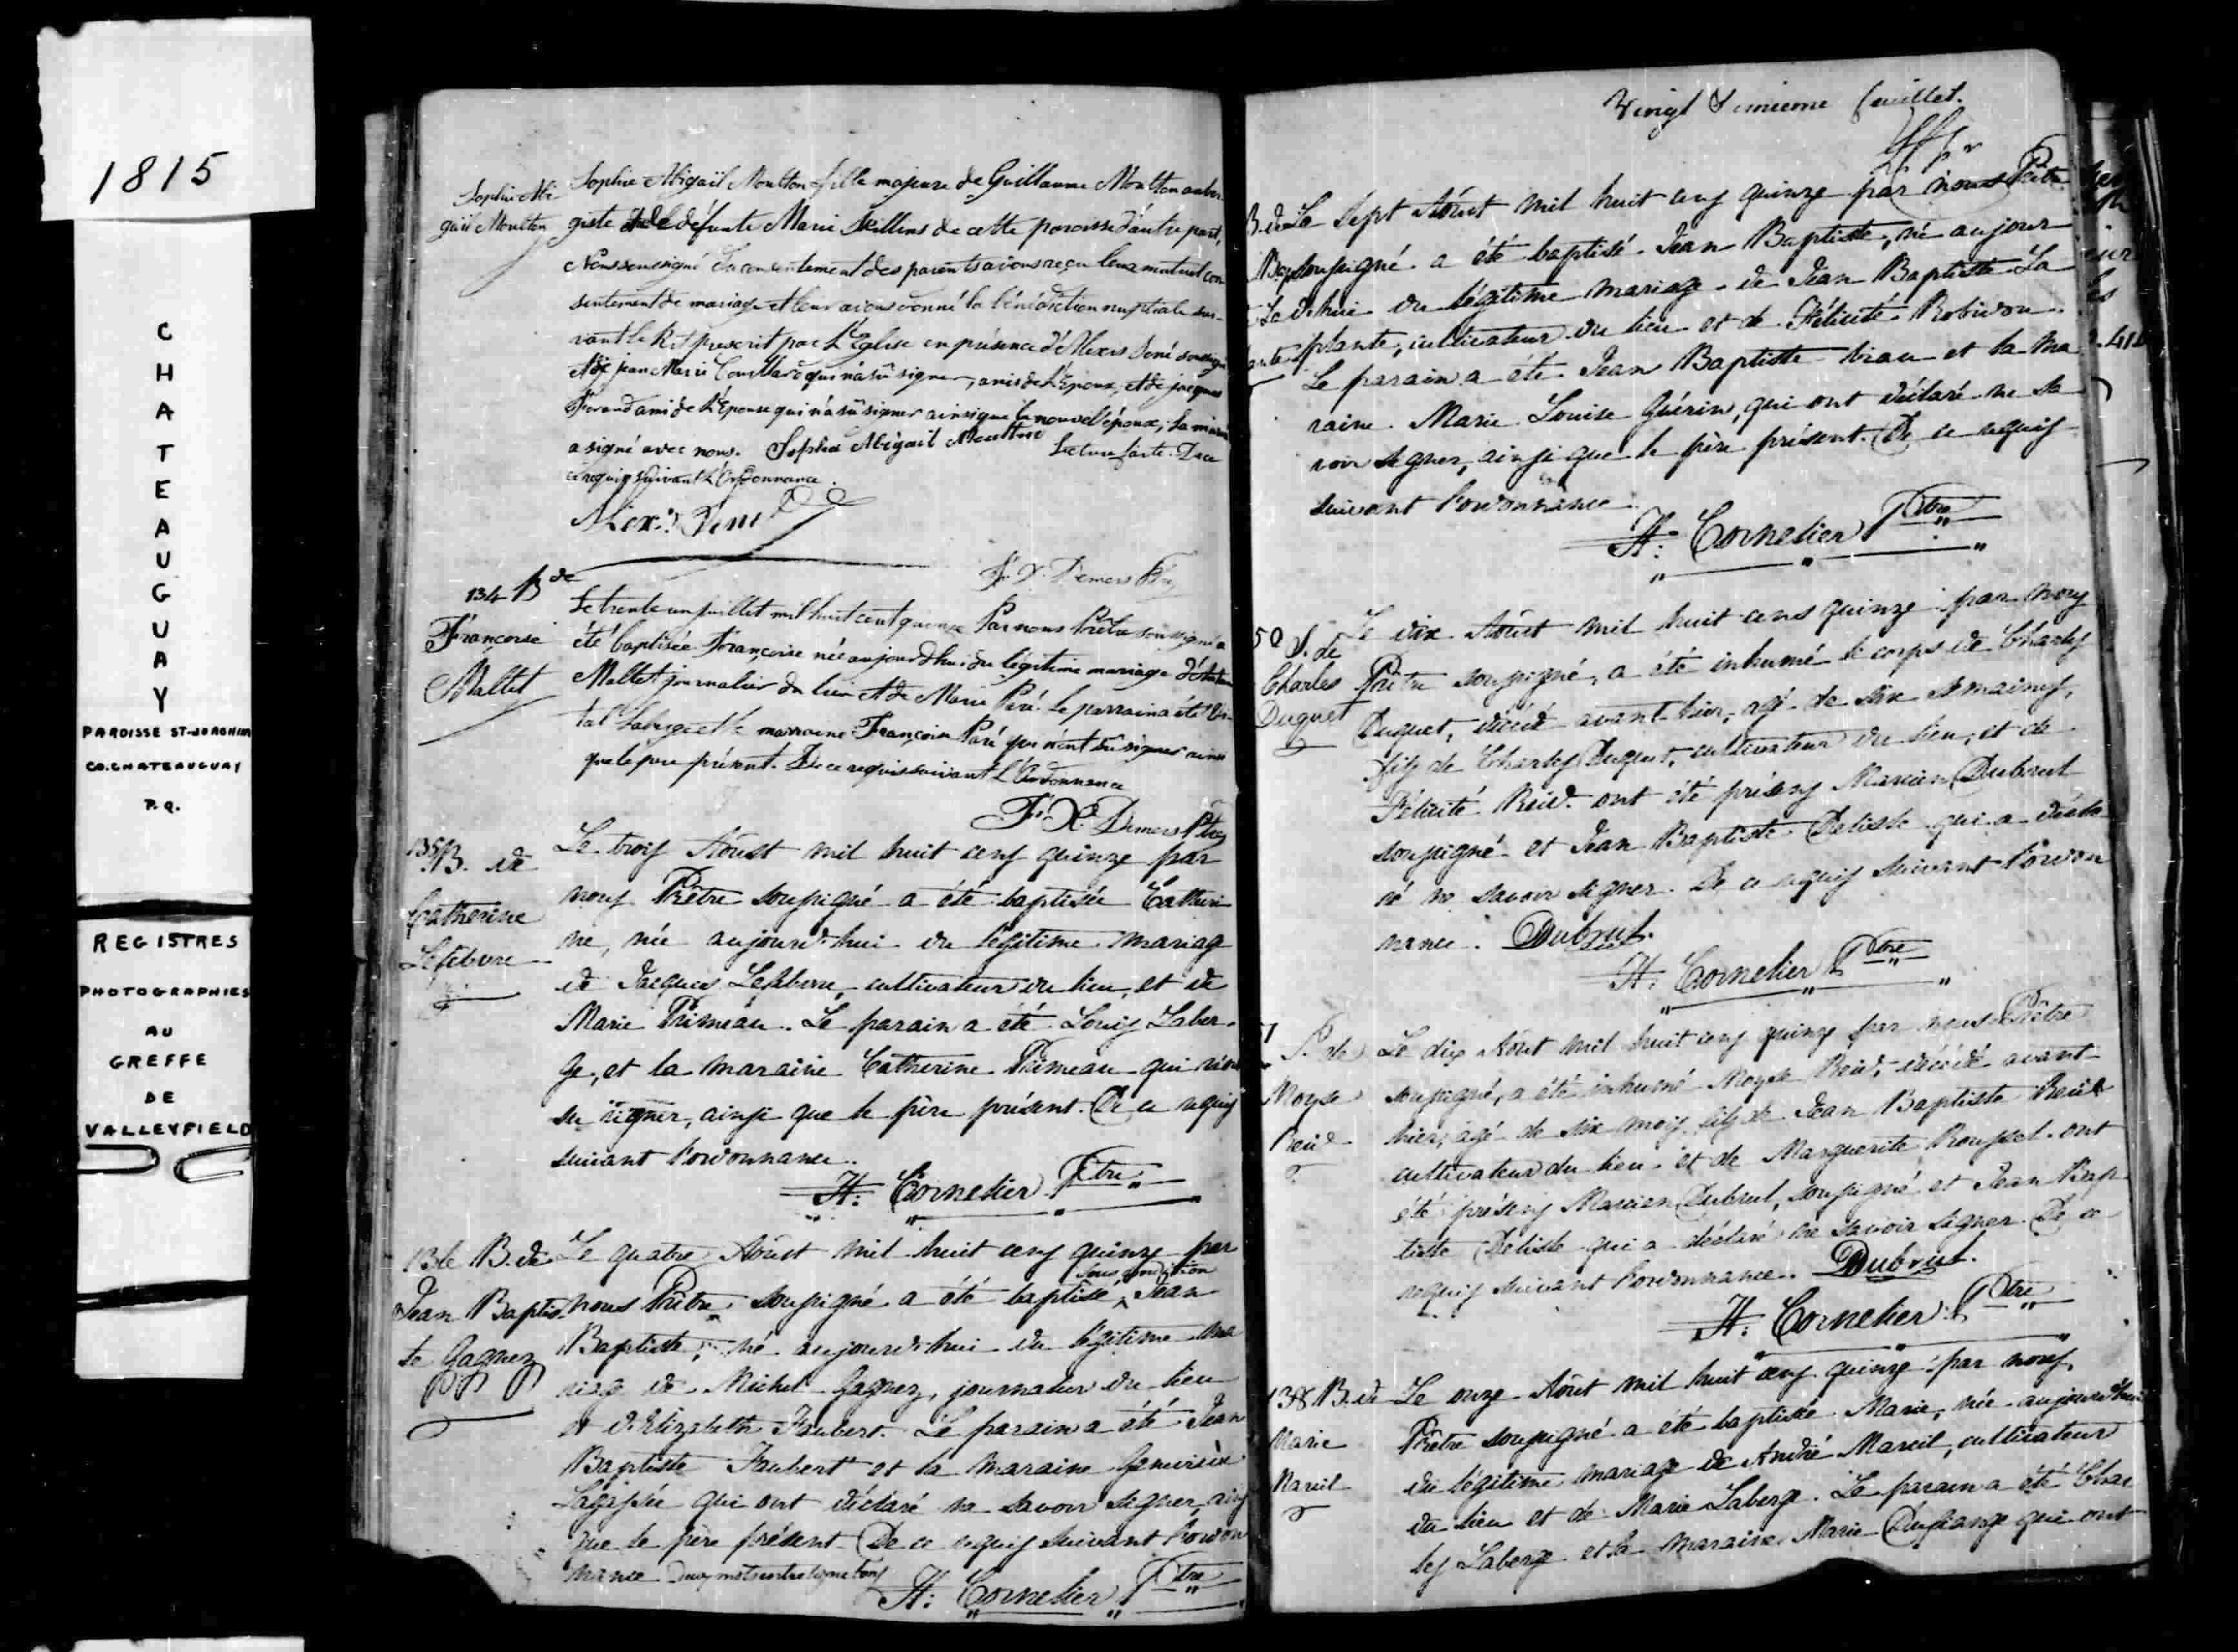 1815
CHATEAUGUAY
PAROISSE ST-JOACHIM
CO. CHATEAUGUAY
P.Q.
REGISTRES
PHOTOGRAPHIES
AU
GREFFE
DE
VALLEYFIELD
Sophie Abi
gaïl Moulton
Sophie Abigaïl Moulton fille majeure de Guillaume Moulton auber
giste et de défunte Marie Willims de cette paroisse d'autre part,
Nous soussigné du consentement des parents avons reçu leur mutuel con
sentement de mariage et leur avons donné la bénédiction nuptiale sui-
vant le Rit prescrit par L'Eglise en présence d'Alexis Dené soussigné
et de jean Marie Couillard qui n'a su signer, amis de L'Epoux, et de jacques
amide L'Epouse qui n'a su signer ainsi que le nouvel époux, La mariée
a signé avec nous. Sophia Abigail Moulton Lecture faite. De ce
requis suivant L'Ordonnance.
Alex. Dené
F. X. Demers Ptre
134 B de
Françoise
Mallet
Le trente un juillet mil huit cent quinze Par nous Prêtre soussigné a
été baptisée Françoise née aujourdhui du légitime mariage d'Antoine
Mallet journalier du lieu et de Marie Paré. Le parrain a été Vi-
tal Laberge et la marraine Françoise Paré qui n'ont su signer ainsi
que le pere présent. De ce requis suivant L'Ordonnance
F. X. Demers Ptre
135 B. de
Catherine
Lefebvre
Le trois Aoûst mil huit cens quinze par
nous Prêtre soussigné a été baptisée Catheri
ne, née aujourd'hui du légitime mariag
de Jacques Lefebvre, cultivateur du lieu, et de
Marie Primeau. Le parain a été Louis Laber-
ge, et la maraine Catherine Primeau qui n'ont
su signer, ainsi que le père présent. De ce requis
suivant l'ordonnance.
H: Cornelier Ptre
136 B. de
Jean Baptis
te Gagnez
Le quatre Aoûst mil huit cens quinze par
nous Prêtre soussigné a été baptisé sous condition Jean
Baptiste, né aujourd'hui du légitime ma
riage de Michel Gagnez, journalier du lieu
et d'Elizabeth Faubert. Le parain a été Jean
Baptiste Faubert et la maraine Genevieve
Lagassée qui ont déclaré ne savoir signer, ainsi
que le père présent. De ce requis suivant l'ordon
nance deux mots entre ligne bons
H: Cornelier Ptre
Vingt Deuxieme feuillet.
B. de
Bap
La
plante
Le sept Aoûst mil huit cens quinze par nous Prêtre
soussigné a été baptisé Jean Baptiste, né aujour
d'hui du légitime mariage de Jean Baptiste La
plante, cultivateur du lieu et de Félicité Robidou.
Le parain a été Jean Baptiste biau et la ma
raine Marie Louise Guérin, qui ont déclaré ne sa
voir signer, ainsi que le père présent. De ce requis
suivant l'ordonnance
H: Cornelier Ptre
50 S. de
Charles
Duquet
Le dix Aoûst mil huit cens quinze par nous
Prêtre soussigné, a été inhumé le corps de Charles
Duquet, décédé avant hier, agé de six semaines,
fils de Charles Duquet, cultivateur du lieu, et de
Félicité Reid. ont été présens Marcien Dubrul
soussigné et Jean Baptiste Delisle qui a décla
ré ne savoir signer. De ce requis suivant l'ordon
nance. Dubrul.
H: Cornelier Ptre
S. de
Moyse
Reid
Le dix Aoûst mil huit cens quinze par nous Prêtre
soussigné, a été inhumé Moyse Reid, décédé avant
hier, agé de six mois fils de Jean Baptiste Reid
cultivateur du lieu et de Marguerite Roussel. ont
été présens Marcien Dubrul, soussigné et Jean Bap
tiste Delisle qui a déclaré ne savoir signer. De ce
requis suivant l'ordonnance. Dubrul.
H: Cornelier Ptre
138 B. de
Marie
Mareil
Le onze Aoûst mil huit cens quinze par nous
Prêtre soussigné a été baptisée Marie, née aujourd'hui
du légitime mariage de André Mareil, cultivateur
du lieu et de Marie Laberge. Le parain a été Char
les Laberge et la maraine Marie qui ont